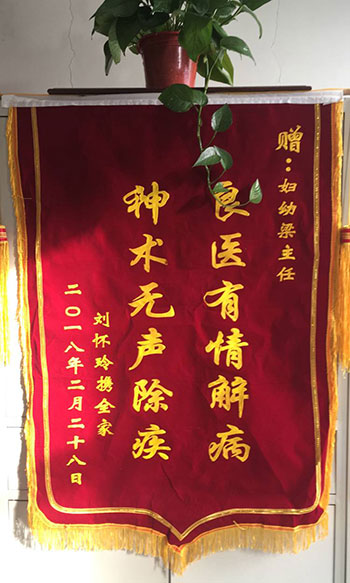 赠：妇幼梁主任
良医有情解病
神术无声除疾
刘怀玲携全家
二〇一八年二月二十八日